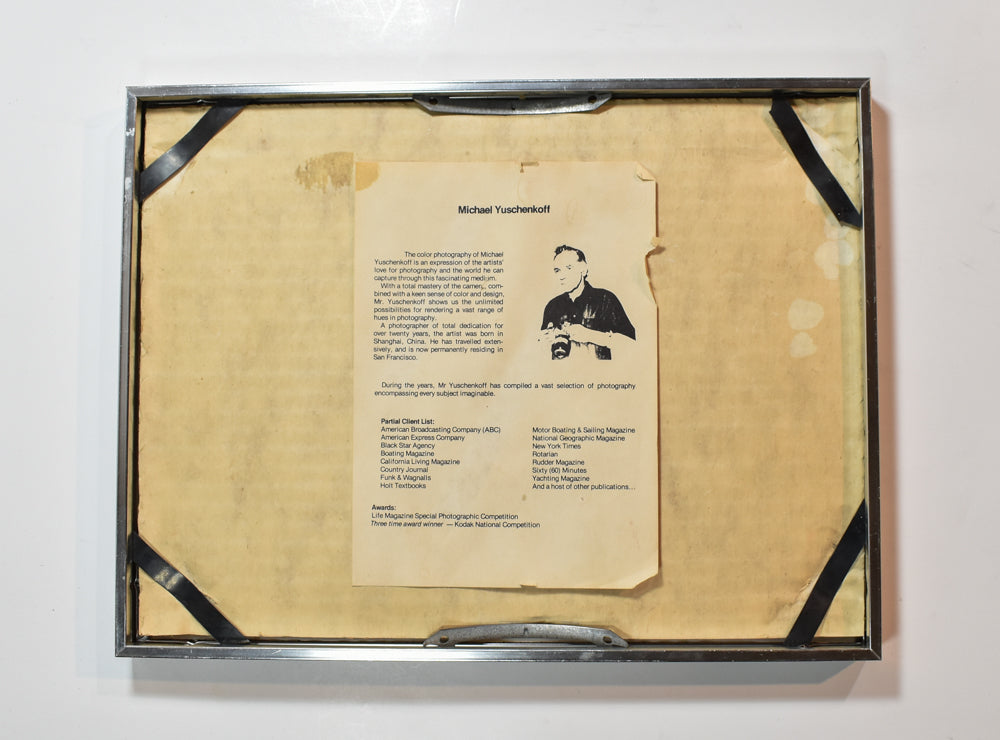 Michael Yuschenkoff
The color photography of Michael
Yuschenkoff is an expression of the artists'
love for photography and the world he can
capture through this fascinating medium.
With a total mastery of the camera, com-
bined with a keen sense of color and design,
Mr. Yuschenkoff shows us the unlimited
possibilities for rendering a vast range of
hues in photography.
A photographer of total dedication for
over twenty years, the artist was born in
Shanghai, China. He has travelled exten-
sively, and is now permanently residing in
San Francisco.
During the years, Mr Yuschenkoff has compiled a vast selection of photography
encompassing every subject imaginable.
Partial Client List:
American Broadcasting Company (ABC)
American Express Company
Black Star Agency
Boating Magazine
California Living Magazine
Country Journal
Funk & Wagnalls
Holt Textbooks
Motor Boating & Sailing Magazine
National Geographic Magazine
New York Times
Rotarian
Rudder Magazine
Sixty (60) Minutes
Yachting Magazine
And a host of other publications...
Awards:
Life Magazine Special Photographic Competition
Three time award winner — Kodak National Competition